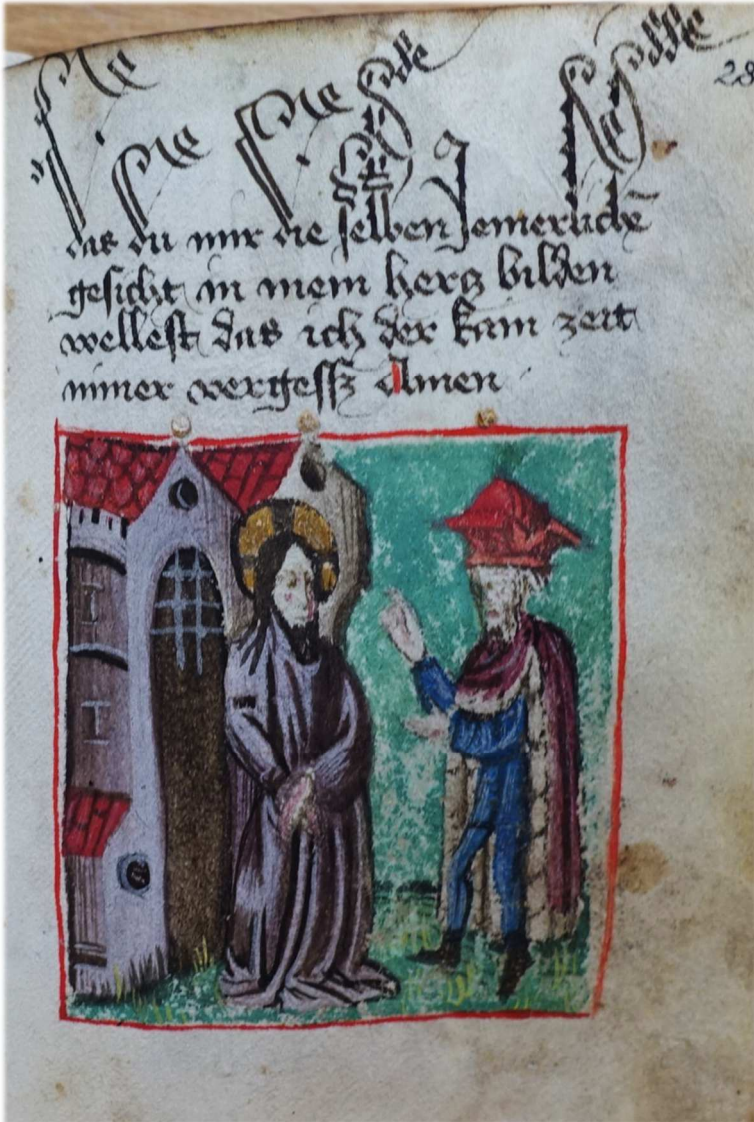 28
das du mir die selben Jemerlichē
gesicht in mein hercz bilden
wellest das ich der kain zeit
nimer vergessz Amen